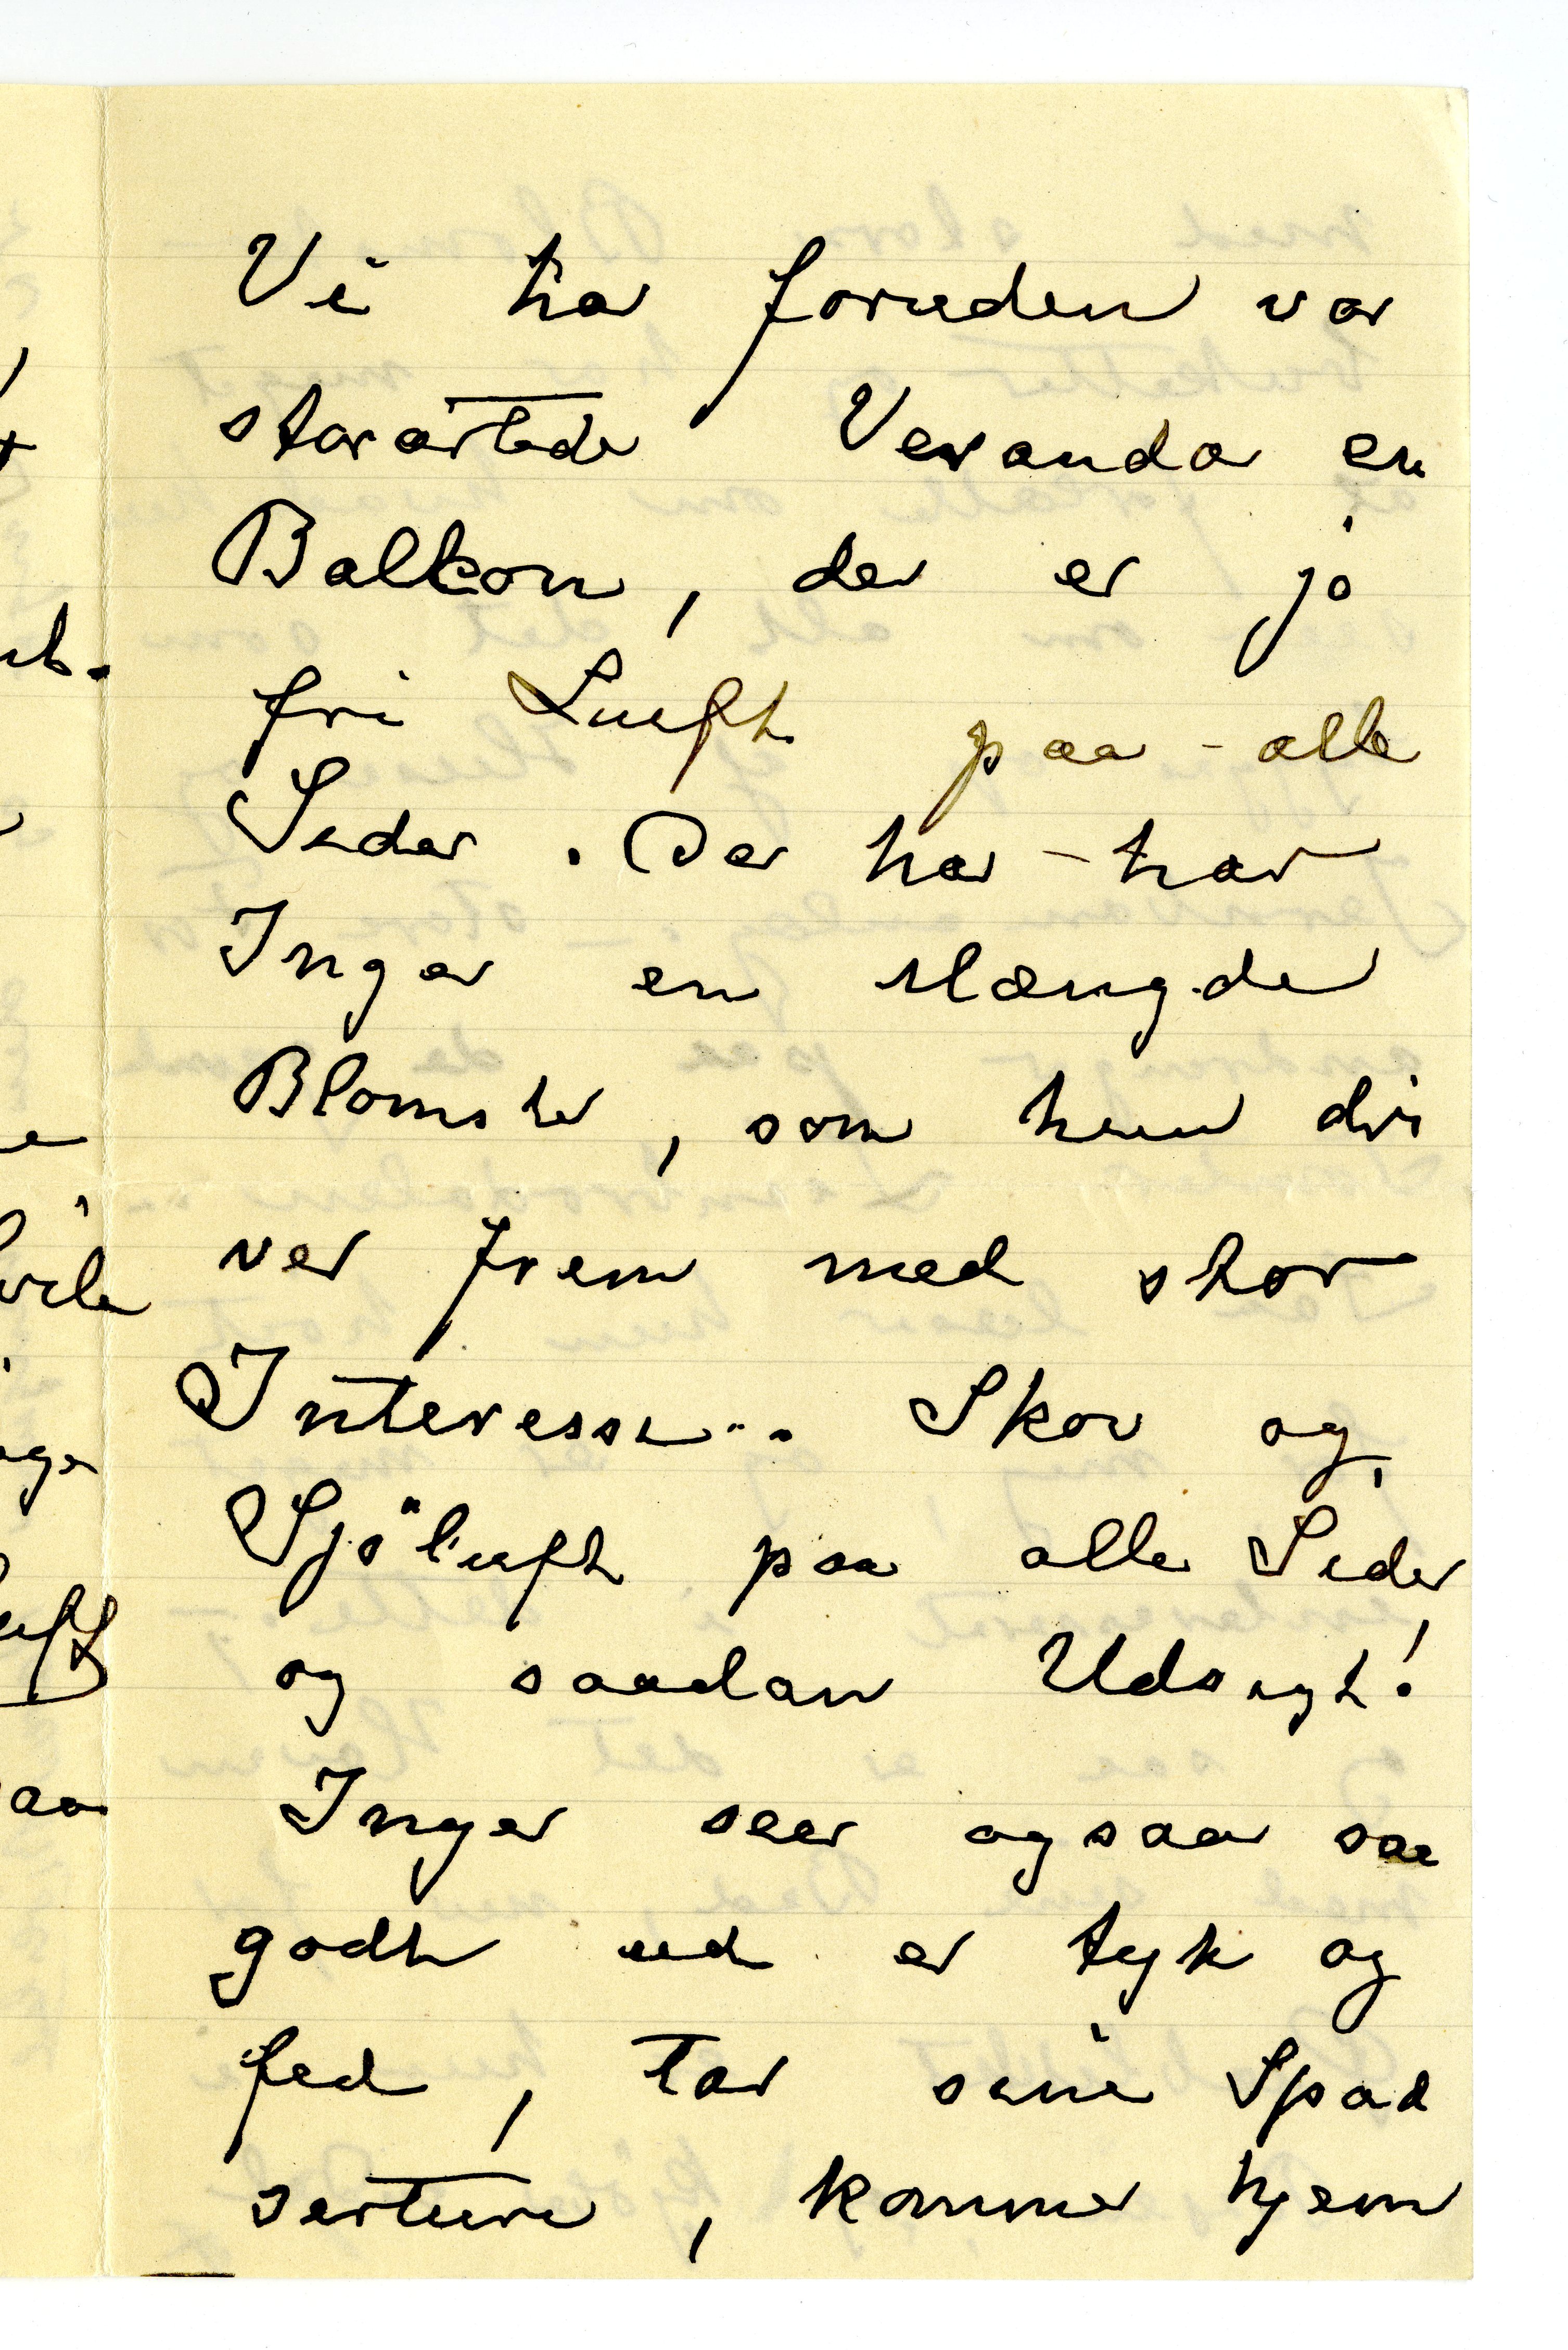 Vi har foruden vor
storartede Veranda en
Balkon, der er jo
fri Luft paa - alle
Sider. Der har - har
Inger en Mængde
Blomster, som hun dri
ver frem med stor
Interesse... Skov og
Sjöluft paa alle Sider
og saadan Udsigt!
Inger seer ogsaa saa
godt ud er tyk og
fed, tar sine Spad
serture, kommer hjem